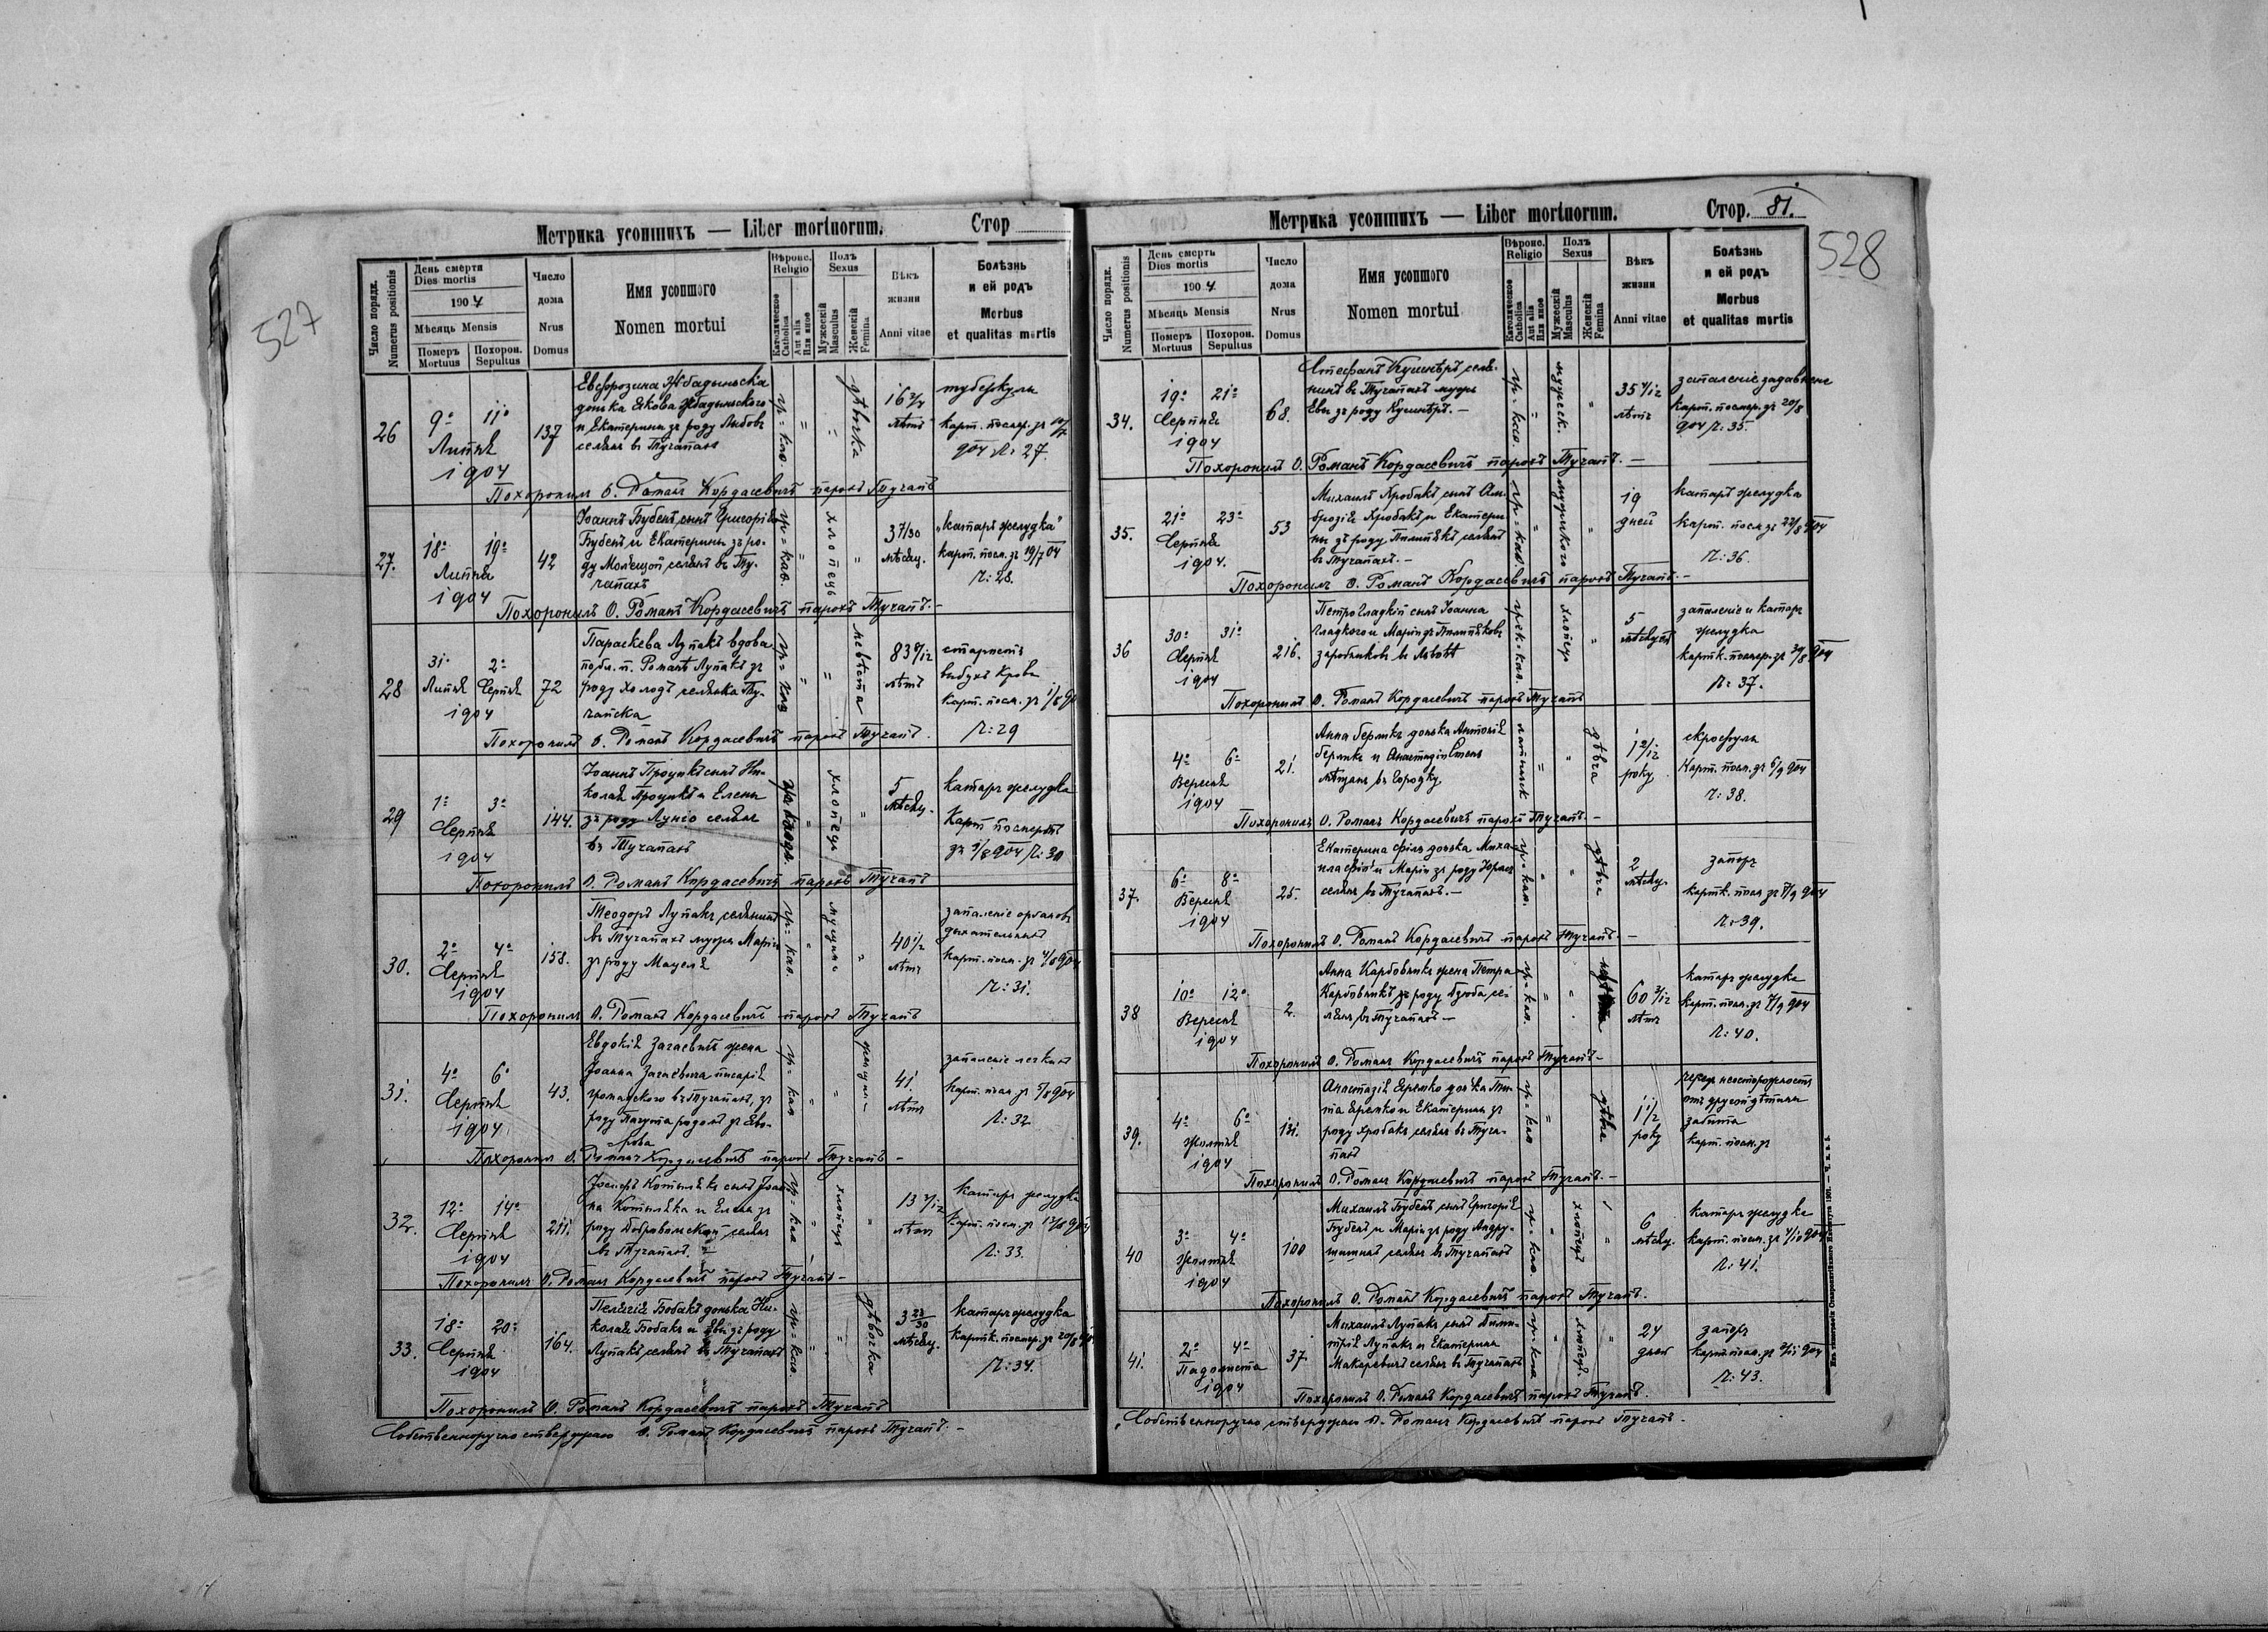 527
Метрика усопшихъ — Liber mortuorum.
Стор
Число порядк.
Numerus positionis
День смерти
Dies mortis
1904
Мѣсяць Mensis
Померъ
Mortuus
Похорон.
Sepultus
Число
дома
Nrus
Domus
Имя усопшого
Nomen mortui
Вѣроис.
Religio
Католическое
Catholica
Aut alia
Или иное
Полъ
Sexus
Мужескій
Masculus
Женскій
Femina
Вѣкъ
жизни
Anni vitae
Болѣзнь
и ей родъ
Morbus
et qualitas mortis
26
9 11
Липня
1904
137
донька Якова
и Екатерины зъ роду
селянъ в Тучапахъ
гр=кат.
16
лѣтъ
туберкулы
карт. посмер. зъ
904 Ч: 27.
Похоронилъ О. Романъ Кордасевичъ парохъ Тучапъ
27.
18 19
Липня
1904
42
Іоаннъ Бубенъ сынъ Григорія
Бубенъ и Екатерины зъ ро-
ду селянъ въ Ту-
чапахъ
гр=кат.
хлопець
3 7/30
мѣсяц.
„катаръ желудка"
карт. посм. зъ 19/7 04
Ч: 28.
Похоронилъ О. Романъ Кордасевичъ парохъ Тучапъ. —
28
31 2
Липня Серпня
1904
72
Параскева Лупакъ вдова
по бл. п. Романѣ Лупакъ зъ
роду Холодъ селянка Ту-
чапска
83
лѣтъ
старость
карт. посм. зъ
Ч: 29
Похоронилъ О. Романъ Кордасевичъ парохъ Тучапъ.
29
1 3
Серпня
1904
144.
Іоаннъ Процикъ сынъ Ни-
колая Процикъ и Елены
зъ роду селянъ
въ Тучапахъ
хлопець
5
мѣсяц.
катаръ желудка
Карт посмерт
зъ 3/8 904 Ч: 30
Похоронилъ О. Романъ Кордасевичъ парохъ Тучапъ
30.
2 4
Серпня
1904
158.
Теодоръ Лупакъ селянинъ
въ Тучапахъ мужъ Маріи
зъ роду
гр=кат.
40
лѣтъ
запаленіе органовъ
дыхательныхъ
карт. посм. зъ 4/8 904
Ч: 31.
Похоронилъ О. Романъ Кордасевичъ парохъ Тучапъ
31.
4 6
Серпня
1904
43.
Евдокія жена
Іоанна писаря
громадского въ Тучапахъ, зъ
роду родомъ зъ Яво-
рова
гр=кат
41
лѣтъ
запаленіе легкихъ
карт. посм. зъ 5/8 904
Ч: 32
Похоронилъ О. Романъ Кордасевичъ парохъ Тучапъ —
32.
12 14
Серпня
1904
211.
сынъ Іоан-
на и Елены зъ
роду Добровольской селянъ
въ Тучапахъ. —
хлопець
13
лѣтъ
Катаръ желудка
Карт. посм. зъ 13/8 904
Ч: 33.
Похоронилъ О. Романъ Кордасевичъ парохъ Тучапъ —
33.
18 20
Серпня
1904
164.
Пелагія Бобакъ донька Ни-
колая Бобакъ и Евы зъ роду
Лупакъ селянъ въ Тучапахъ
гр=кат.
дѣвочка
3
мѣсяц.
Катаръ желудка
карт. посмер. зъ 20/8
Ч: 34.
Похоронилъ О. Романъ Кордасевичъ парохъ Тучапъ
Собственноручно стверджаю О. Романъ Кордасевичъ парохъ Тучапъ. —
528
Метрика усопшихъ — Liber mortuorum.
Стор. 81.
Число порядк.
Numerus positionis
День смерть
Dies mortis
1904
Мѣсяць Mensis
Померъ
Mortuus
Похорон.
Sepultus
Число
дома
Nrus
Domus
Имя усопшого
Nomen mortui
Вѣроис.
Religio
Католическое
Catholica
Aut alia
Или иное
Полъ
Sexus
Мужескій
Masculus
Женскій
Femina
Вѣкъ
жизни
Anni vitae
Болѣзнь
и ей родъ
Morbus
et qualitas mortis
34.
19 21
Серпня
1904
68.
Стефанъ Кушнѣръ селя-
нинъ въ Тучапахъ мужъ
Евы зъ роду Кушнѣръ. —
гр=кат.
мужеск.
35
лѣтъ
запаленіе
карт. посмер. зъ 20/8
904 Ч: 35.
Похоронилъ О. Романъ Кордасевичъ парохъ Тучапъ. —
35.
21 23
Серпня
1904.
53
Михаилъ Хробакъ сынъ Ам-
брозія Хробакъ и Екатери-
ны зъ роду селянъ
въ Тучапахъ. —
гр=кат.
19
дней
катаръ желудка
карт. посм зъ 22/8 904
Ч: 36.
Похоронилъ О. Романъ Кордасевичъ парохъ Тучапъ. —
36
30 31
Серпня
1904
216.
Петро Гладкій сынъ Іоанна
Гладкого и Маріи зъ
заробниковъ въ
грек=кат.
хлопець
5
мѣсяцей
запаленіе и катаръ
желудка
Ч: 37.
Похоронилъ О. Романъ Кордасевичъ парохъ Тучапъ
4 6
Вересня
1904
21.
Анна донька Антонія
и Анастазіи
мѣщанъ въ Городку
дѣвча
1
року
скрофулы
Карт. посм. зъ 5/9 904
Ч: 38.
Похоронилъ О. Романъ Кордасевичъ парохъ Тучапъ. —
37.
6 8
Вересня
1904
25.
Екатерина донька Миха-
ила и Маріи зъ роду
селянъ въ Тучапахъ. —
гр=кат.
дѣвча
2
мѣсяц.
запоръ
Ч: 39.
Похоронилъ О. Романъ Кордасевичъ парохъ Тучапъ. —
38
10 12
Вересня
1904
2.
Анна Карбовникъ жена Петра
Карбовникъ зъ роду Дзюба се-
лянъ въ Тучапахъ —
гр=кат.
60
лѣтъ
катаръ желудка
Ч: 40.
Похоронилъ О. Романъ Кордасевичъ парохъ Тучапъ —
39.
4 6
Жолтня
1904
131.
Анастазія Яремко дочка
Яремко и Екатерины зъ
роду Хробакъ селянъ въ Туча-
пахъ
гр=кат
дѣвча
1 1/2
року
черезъ неосторожность
забита
карт. посм. зъ
Похоронилъ О. Романъ Кордасевичъ парохъ Тучапъ. —
40
3 4
Жолтня
1904
100
Михаилъ Бубенъ сынъ Григорія
Бубенъ и Маріи зъ роду Андру-
селянъ въ Тучапахъ
гр=кат.
хлопець
6
мѣсяц.
катаръ желудка
карт. посм. зъ 4/10 904
Ч: 41.
Похоронилъ О. Романъ Кордасевичъ парохъ Тучапъ.
41.
2 4
Падолиста
1904
37.
Михаилъ Лупакъ сынъ Дими-
трія Лупакъ и Екатерины
Макаревичъ селянъ въ Тучапахъ
хлопець.
24
дней
запоръ
Ч: 43.
Похоронилъ О. Романъ Кордасевичъ парохъ Тучапъ.
Собственноручно стверджаю О. Романъ Кордасевичъ парохъ Тучапъ —